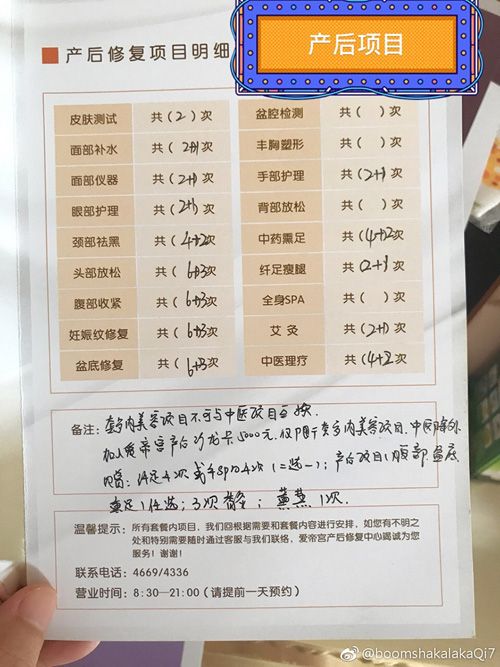 产后修复项目明细
产后项目
皮肤测试 共(2)次 盆腔检测 共( )次
面部补水 共(2+1)次 丰胸塑形 共( )次
面部仪器 共(2+1)次 手部护理 共(2+1)次
眼部护理 共(2+1)次 背部放松 共( )次
颈部祛黑 共(4+2)次 中药熏足 共(4+2)次
头部放松 共(6+3)次 纤足瘦腿 共(2+1)次
腹部收紧 共(6+3)次 全身SPA 共( )次
妊娠纹修复 共(6+3)次 艾灸 共(2+1)次
盆底修复 共(6+3)次 中医理疗 共(4+2)次
备注:套餐内美容项目不可与中医项目互换.
加入爱帝宫产后沙龙卡5000元.仅限于套餐内美容项目.中医除外
4次 或 4次(二选一);产后项目
任选;3次 ; 1次.
温馨提示:所有套餐内项目,我们回根据需要和套餐内容进行安排,如您有不明之
处和特别需要随时通过客服与我们联络,爱帝宫产后修复中心竭诚为您
服务!谢谢!
联系电话:4669/4336
营业时间:8:30—21:00(请提前一天预约)
@boomshakalakaQi7